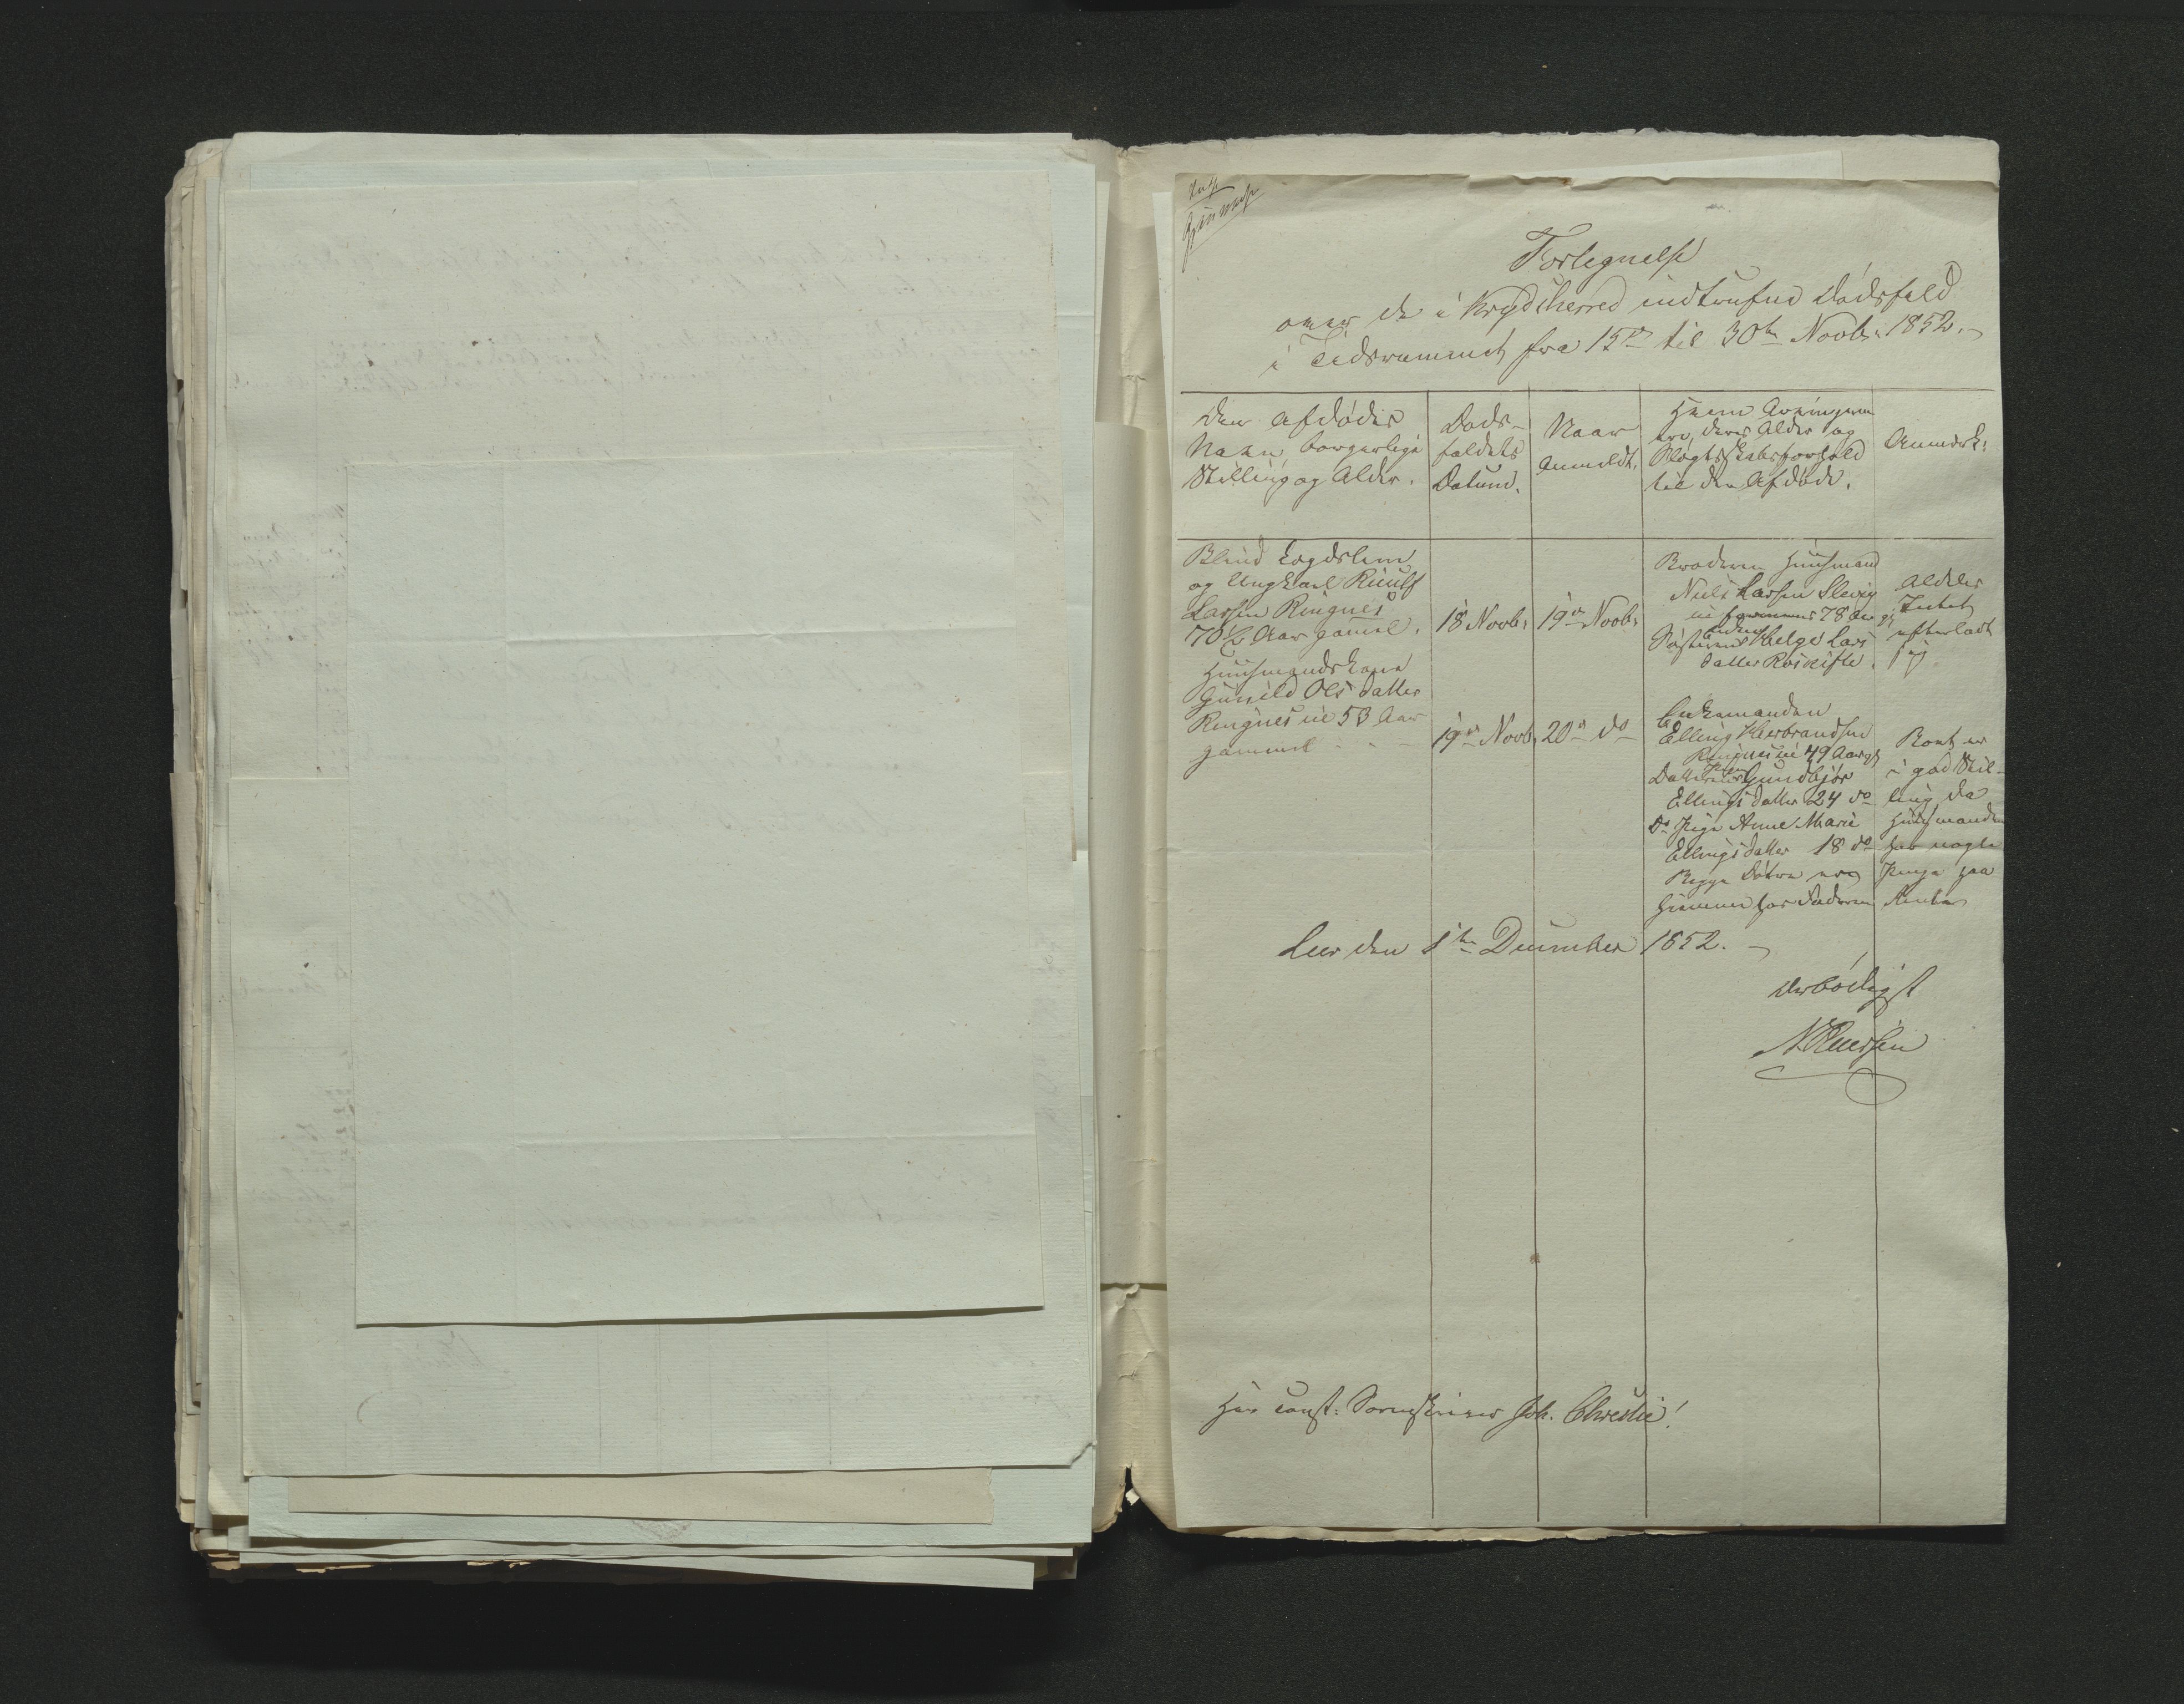 Fortegnelse
over de i Krydsherred indtrufne Dødsfald
i Tidsrummet fra 15de til 30te Novbr: 1852.
Den Afdødes
Navn, borgerlige
Stilling og Alder.
Døds-
faldets
Datum.
Naar
Anmeldt.
Hvem Arvingerne
ere, deres Alder og
Slægtskabsforhold
til den Afdøde.
Anmærk:
Blind Lægdslem
og Ungkarl Ruulf
Larsen Ringnes
70½ Aar gamel.
18 Novbr:
19de Novbr:
Broderen Huusmand
Niels Larsen Slevig
78 Aar gl
Søsteren Helge Lars
datter Roskifte.
Aldeles
Intet
efterladt
sig
Huusmandskone
Gunild Ols datter
Ringnes eie 53 Aar
gammel
19de Novb.
20de do
Enkemanden
Elling Herbrandsen
Ringnes eie 49 Aar gl
Datteren Pige Gundbjør
Ellings datter 24 do
Do Pige Anne Marie
Ellings datter 18 do
Begge Døtre ere
hiemme hos Faderen
Boet er
i god Stil-
ling da
Huusmanden
har nogle
Penge paa
Renter
Leer den 1ste December 1852.
Ærbødigst
Hr. const: Sorenskriver Joh. Christie!